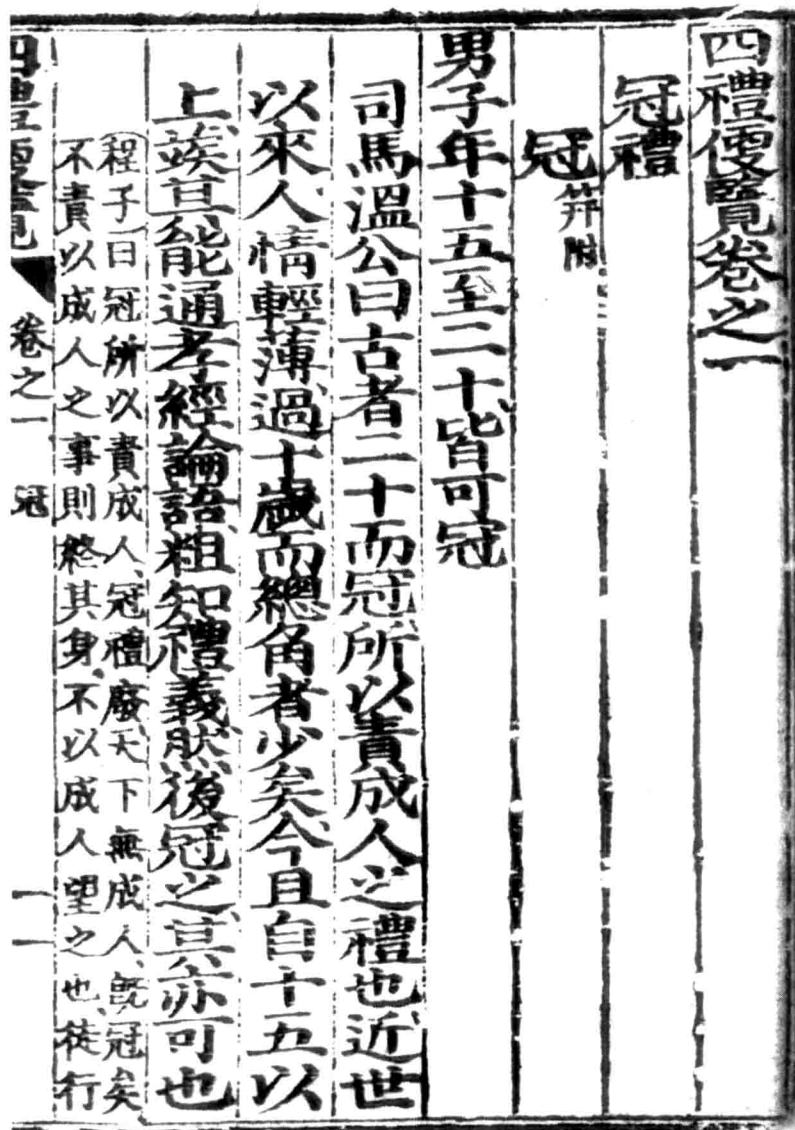 四禮便覽卷之一
冠禮
冠 笄附
男子年十五至二十皆可冠
司馬溫公曰古者二十而冠所以責成人之禮也近世
以來人情輕薄過十歲而總角者少矣今且自十五以
上俟其能通孝經論語粗知禮義然後冠之其亦可也
程子曰冠所以責成人冠禮廢天下無成人既冠矣
不責以成人之事則終其身不以成人望之也徒行
四禮便覽 卷之一 冠 一